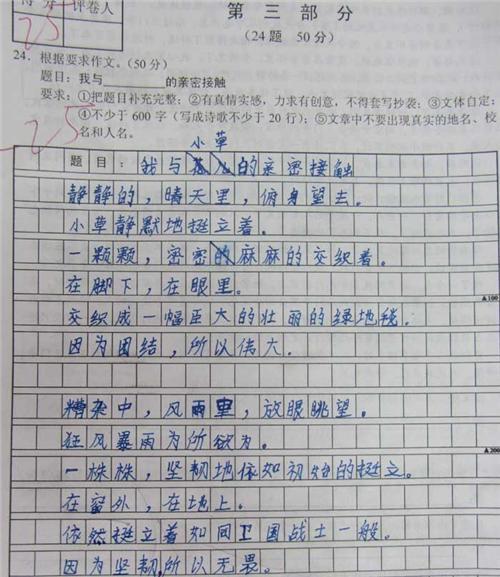 得分 评卷人
25
第三部分
(24题 50分)
24. 根据要求作文。(50分)
题目：我与________的亲密接触
要求：①把题目补充完整；②有真情实感，力求有创意，不得套写抄袭；③文体自定；
④不少于 600 字（写成诗歌不少于 20 行）；⑤文章中不要出现真实的地名、校
名和人名。
25
小草
题目：我与的亲密接触
静静的，晴天里，俯身望去。
小草静默地挺立着。
一颗颗，密密麻麻的交织着。
在脚下，在眼里。
▲100
交织成一幅巨大的壮丽的绿地毯。
因为团结，所以伟大。
糟杂中，风雨里，放眼眺望。
狂风暴雨为所欲为。
▲200
一株株，坚韧地依如初始的挺立。
在窗外，在地上。
依然挺立着如同卫国战士一般。
因为坚韧，所以无畏。